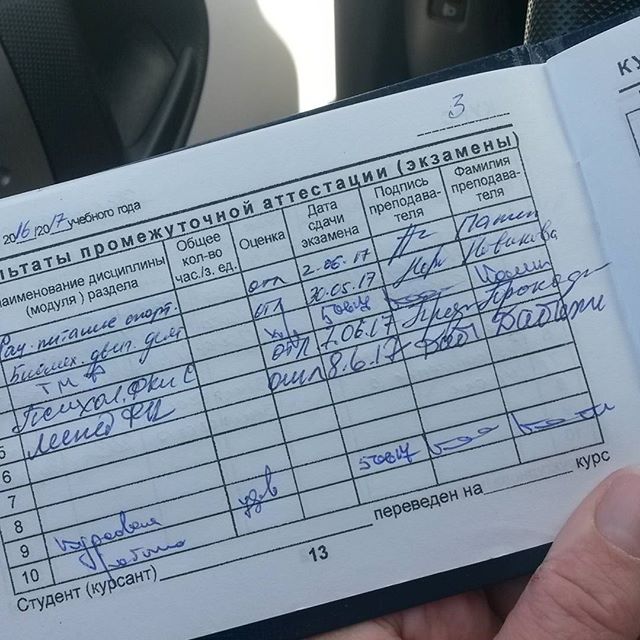 3
2016/2017 учебного года
льтаты промежуточной аттестации (экзамены)
наименование дисциплины (модуля) раздела
Общее кол-во час./з. ед.
Оценка
Дата сдачи экзамена
Подпись преподава- теля
Фамилия преподава- теля
Рац. питание спорт. отл 2.06.17
Биомех. двиг. деят отл 30.05.17 Новикова
ТМФ
Психол. ФКиС отл 7.06.17
5 Менед ФК отл 8.6.17
6
7
8
9 курсовая удв
10 работа
переведен на курс
Студент (курсант)
13
ку